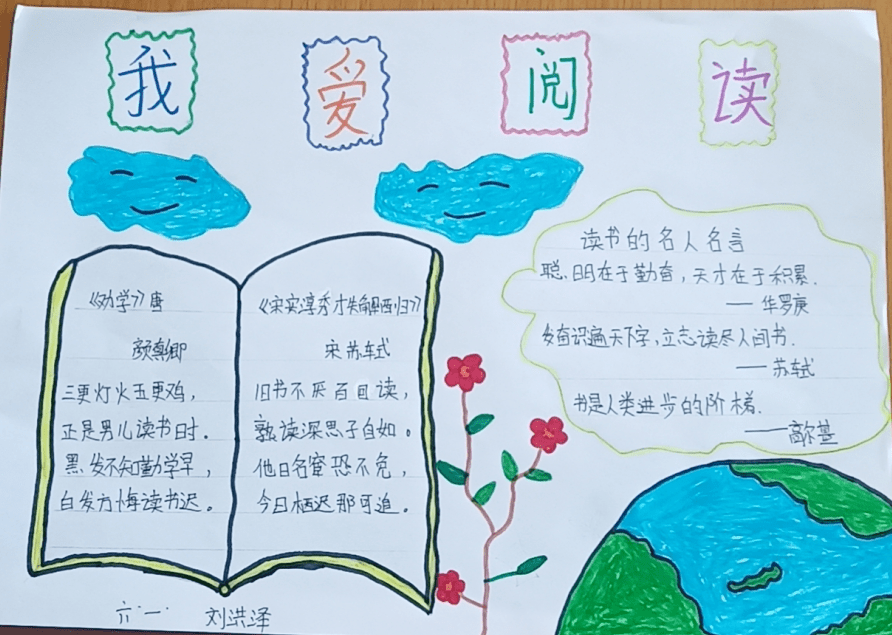 我爱阅读
《劝学》唐
颜真卿
三更灯火五更鸡，
正是男儿读书时．
黑发不知勤学早，
白发方悔读书迟。
《宋安淳秀才失解西归》
宋苏轼
旧书不厌百回读，
熟读深思子自知。
他日名宦恐不免，
今日栖迟那可追。
读书的名人名言
聪明在于勤奋，天才在于积累．
——华罗庚
发奋识遍天下字，立志读尽人间书．
——苏轼
书是人类进步的阶梯．
——高尔基
六·一·
刘洪泽